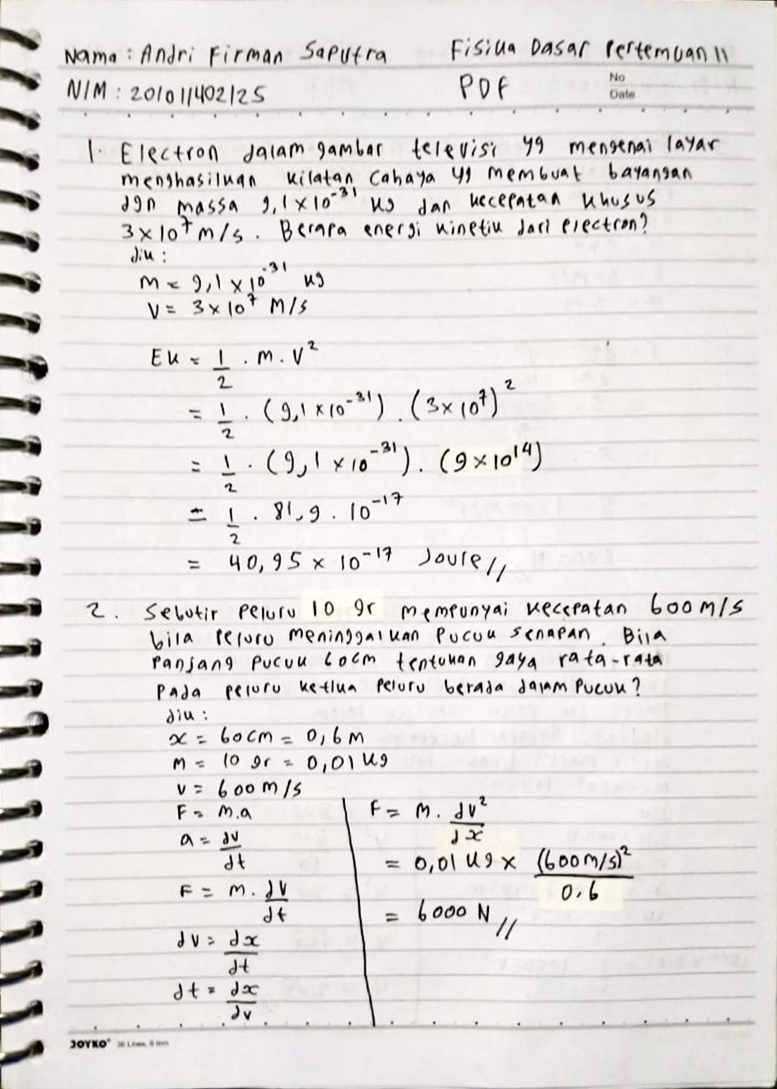 Nama : Andri Firman Saputra Fisika Dasar Pertemuan 11
NIM : 201011402125 PDF No
Date
1. Electron dalam gambar televisi yg mengenai layar
menghasilkan kilatan cahaya yg membuat bayangan
dgn massa 9,1 x 10⁻³¹ kg dan kecepatan khusus
3 x 10⁷ m/s. Berapa energi kinetik dari electron?
dik :
M = 9,1 x 10⁻³¹ kg
V = 3 x 10⁷ M/s
Ek = 1/2 . m . V²
= 1/2 . (9,1 x 10⁻³¹) . (3 x 10⁷)²
= 1/2 . (9,1 x 10⁻³¹) . (9 x 10¹⁴)
= 1/2 . 81,9 . 10⁻¹⁷
= 40,95 x 10⁻¹⁷ Joure //
2. Sebutir peluru 10 gr mempunyai kecepatan 600 m/s
bila peluru meninggalkan pucuk senapan. Bila
panjang pucuk 60cm tentukan gaya rata-rata
pada peluru ketika peluru berada dalam pucuk?
dik :
x = 60cm = 0,6 M
M = 10 gr = 0,01 kg
V = 600 m/s
F = m.a
a = dv/dt
F = m. dv/dt
dv = dx/dt
dt = dx/dv
F = M. dv²/dx
= 0,01 kg x (600 m/s)²/0,6
= 6000 N //
JOYKO 36 Lines, 8 mm